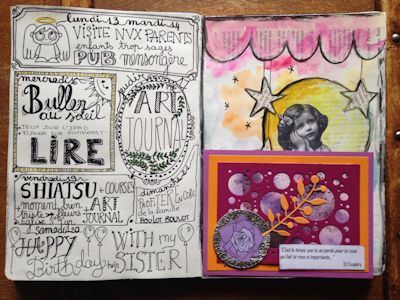 lundi 13 mardi 14
VISITE NVX PARENTS
enfants trop sages
PUB mensongère
mercredi 15
Buller
au soleil
JEUX SUR L'IPAD
FLANER SUR PINTEREST
LIRE
ART
JOURNAL
vendredi
SHIATSU + COURSES
moment bien
triste fleurs
ART
JOURNAL
dimanche
PROFITER ENCORE
de la famille
BOULOT BOULOT
samedi
HAPPY
Birthday
WITH my
SISTER
"C'est le temps que tu as perdu pour ta rose
qui fait ta rose si importante..."
St Exupéry